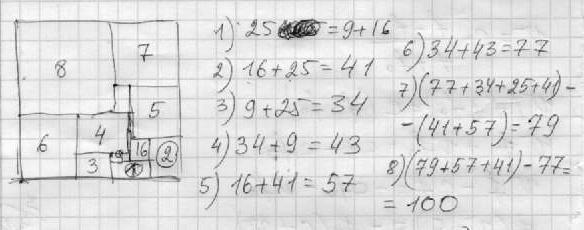 8
7
5
6
4
3
9
16
2
1
1) 25 = 9+16
2) 16+25 = 41
3) 9+25 = 34
4) 34+9 = 43
5) 16+41 = 57
6) 34+43 = 77
7) (77+34+25+41) -
- (41+57) = 79
8) (79+57+41) - 77 =
= 100